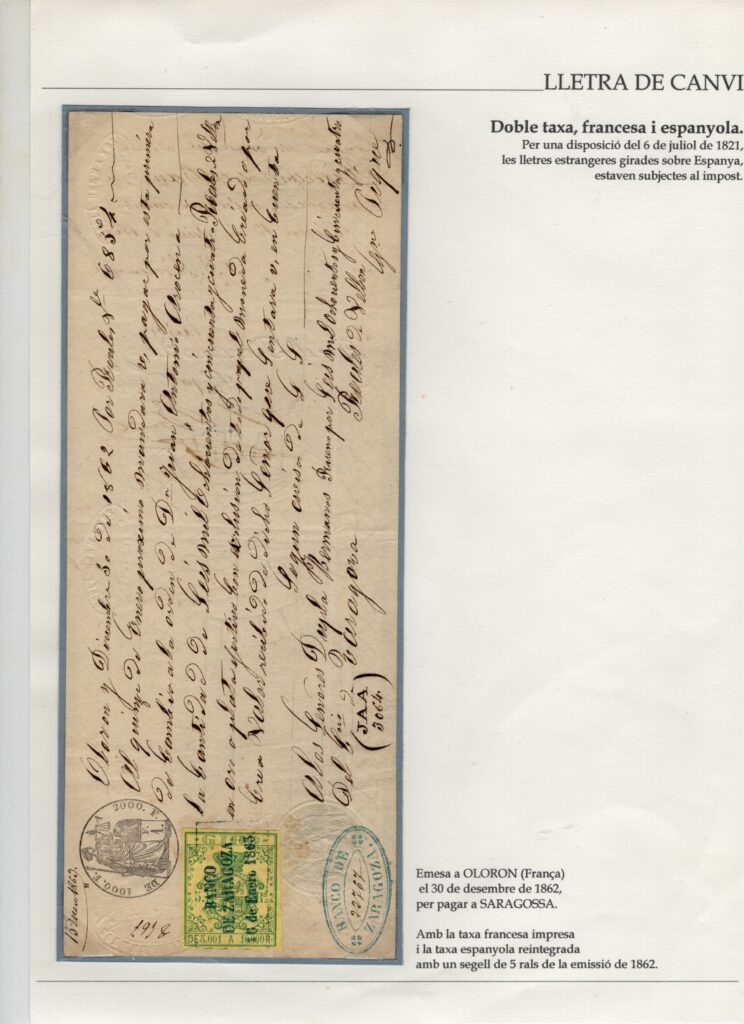 LLETRA DE CANVI
Doble taxa, francesa i espanyola.
Per una disposició del 6 de juliol de 1821,
les lletres estrangeres girades sobre Espanya,
estaven subjectes al impost.
Oloron y Diciembre 30 de 1862 Por Reales Vn 6854
Al quinze de Enero proximo mandara v, pagar por esta primera
de Cambio a la orden de Dn Juan Antonio Arocena
la Cantidad de Seis mil Ochocientos y cincuenta y cuatro Reales de Vellon
en oro o plata efectivo con exclusion de todo papel moneda Creado o por
Crear Valor recibido de dicho Señor que Sentara v, en Cuenta
Segun aviso de
A los Señores Hermanos
Zaragoza
Reales de Vellon
(JAA
3064)
DE 1000. F. A 2000. F.
15 Enero 1863.
GIRO
BANCO
DE ZARAGOZA
DE 5,001 A
BANCO DE ZARAGOZA
Emesa a OLORON (França)
el 30 de desembre de 1862,
per pagar a SARAGOSSA.
Amb la taxa francesa impresa
i la taxa espanyola reintegrada
amb un segell de 5 rals de la emissió de 1862.